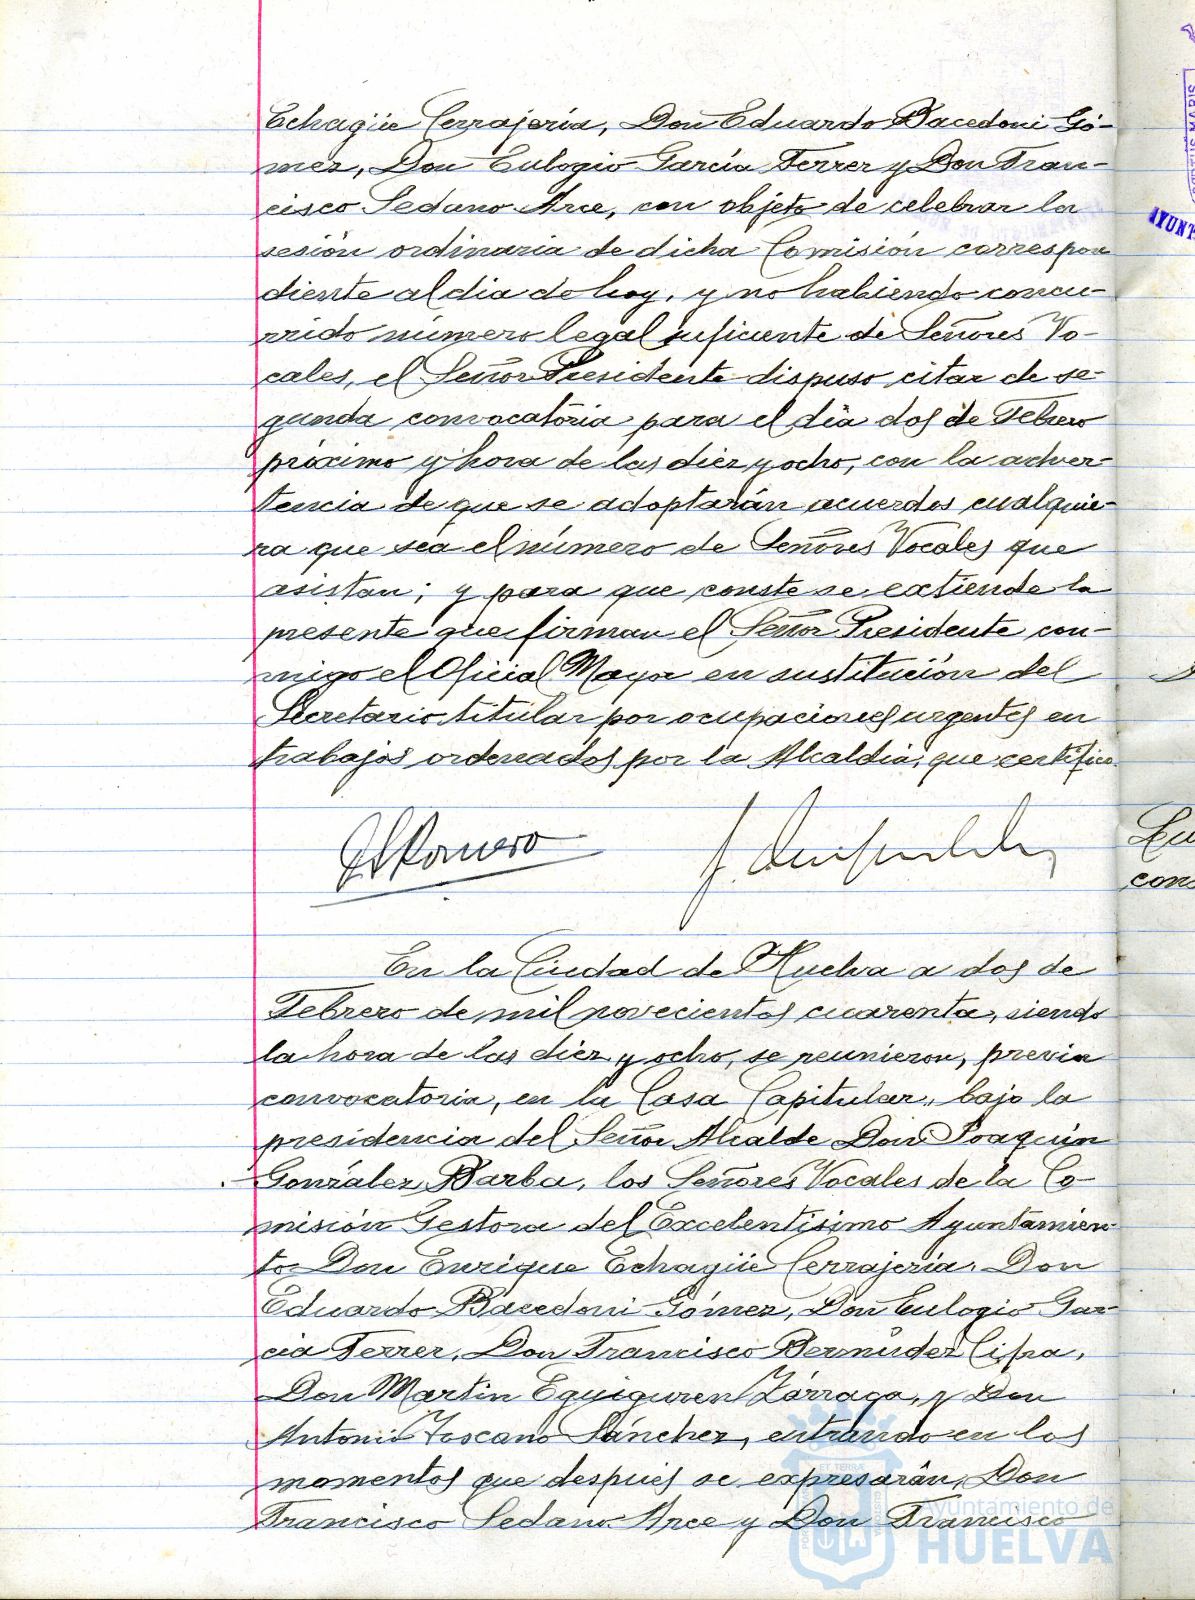 Echagüe Cerrajería, Don Eduardo Bacedoni Gó-
mez, Don Eulogio García Ferrer y Don Fran-
cisco Sedano Arce, con objeto de celebrar la
sesión ordinaria de dicha Comisión correspon
diente al dia de hoy, y no habiendo concu-
rrido número legal suficiente de Señores Vo-
cales, el Señor Presidente dispuso citar de se-
gunda convocatória para el día dos de Febrero
próximo y hora de las diez y ocho, con la adver-
tencia de que se adoptarán acuerdos cualquie-
ra que sea el número de Señores Vocales que
asistan; y para que conste se extiende la
presente que firman el Señor Presidente con-
migo el Oficial Mayor en sustitución del
Secretario titular por ocupaciones urgentes en
trabajos ordenados por la Alcaldía, que certifico.
Romero
En la Ciudad de Huelva a dos de
Febrero de mil novecientos cuarenta, siendo
la hora de las diez y ocho, se reunieron, previa
convocatoria, en la Casa Capitular, bajo la
presidencia del Señor Alcalde Don Joaquín
González Barba, los Señores Vocales de la Co-
misión Gestora del Excelentísimo Ayuntamien-
to Don Enrique Echagüe Cerrajería, Don
Eduardo Bacedoni Gómez, Don Eulogio Gar-
cía Ferrer, Don Francisco Bermúdez Cifra,
Don Martín Eguiguren Zárraga, y Don
Antonio Toscano Sánchez, entrando en los
momentos que después se expresarán, Don
Francisco Sedano Arce y Don Francisco
Ayuntamiento de
HUELVA